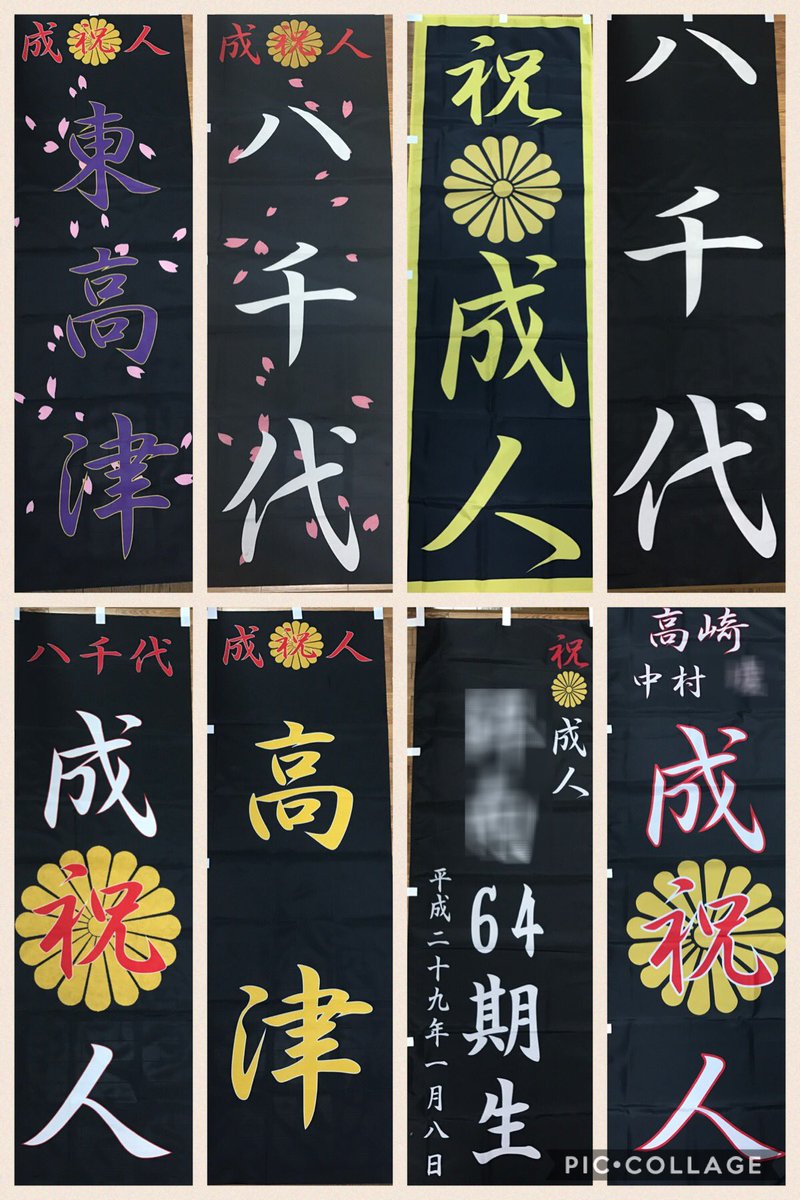 成祝人
東高津
成祝人
八千代
祝成人
八千代
八千代
成祝人
成祝人
高津
祝成人
64期生
平成二十九年一月八日
高崎
中村
成祝人
PIC•COLLAGE